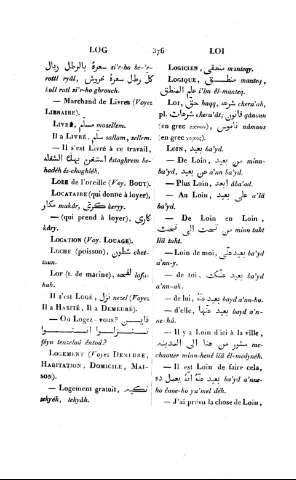 LOG 376 LOI
سعرة بالرطل ريال si'r-ho be'r-
rotl ryâl, كل رطل سعره غروش
koll rotl si'r-ho ghrouch.
— Marchand de Livres (Voyez
LIBRAIRE).
LIVRÉ, مسلّم mosellem.
Il a LIVRÉ, سلّم sallam, sellem.
— Il s'est Livré à ce travail,
استغرق بهذه الشغلة
hadéh éch-choghléh.
LOBE de l'oreille (V. BOUT).
LOCATAIRE (qui donne à loyer),
مكار mokâr, كرى keryy.
— (qui prend à loyer), كارى
kâry.
LOCATION (Voy. LOUAGE).
LOCHE (poisson), شطون chet-
toun.
LOF (t. de marine), لفه lofa-
hah.
Il s'est LOGÉ, نزل nezel (Voyez
Il a HABITÉ, Il a DEMEURÉ).
— Où Logez-vous? فاين
تنزلوا انتوا
fâyn tenzeloû éntoâ?
LOGEMENT (Voyez DEMEURE,
HABITATION, DOMICILE, MAI-
SON).
— Logement gratuit, تكيه
tekyéh, tekyâh.
LOGICIEN, منطقى manteqy.
LOGIQUE, منطق manteq,
علم المنطق i'lm êl-manteq.
LOI, حق haqq, شرعة chera'ah,
pl. شرعات chera'ât; قانون qânoun
(en grec κανων), ناموس nâmous
(en grec νομος).
LOIN, بعيد ba'yd.
— De Loin, من بعيد min-
ba'yd, عن بعيد a'n ba'yd.
— Plus Loin, ابعد âba'ad.
— Au Loin, على بعيد a'lä
ba'yd.
— De Loin en Loin,
من تحت الى تحت min taht
ilä taht.
— Loin de moi, بعيد عنّى ba'yd
a'nn-y.
— de toi, بعيد عنّك ba'yd
a'nn-ak.
— de lui, بعيد عنه bayd a'nn-ho.
— d'elle, بعيد عنها bayd a'n-
ne-hâ.
— Il y a Loin d'ici à la ville,
مشوار من هنا الى المدينه me-
chouer minn-henê ilä êl-medynéh.
— Il est Loin de faire cela,
بعيد عنه انه يعمل ده ba'yd a'nn-
ho énne-ho ya'mel déh.
— J'ai prévu la chose de Loin,